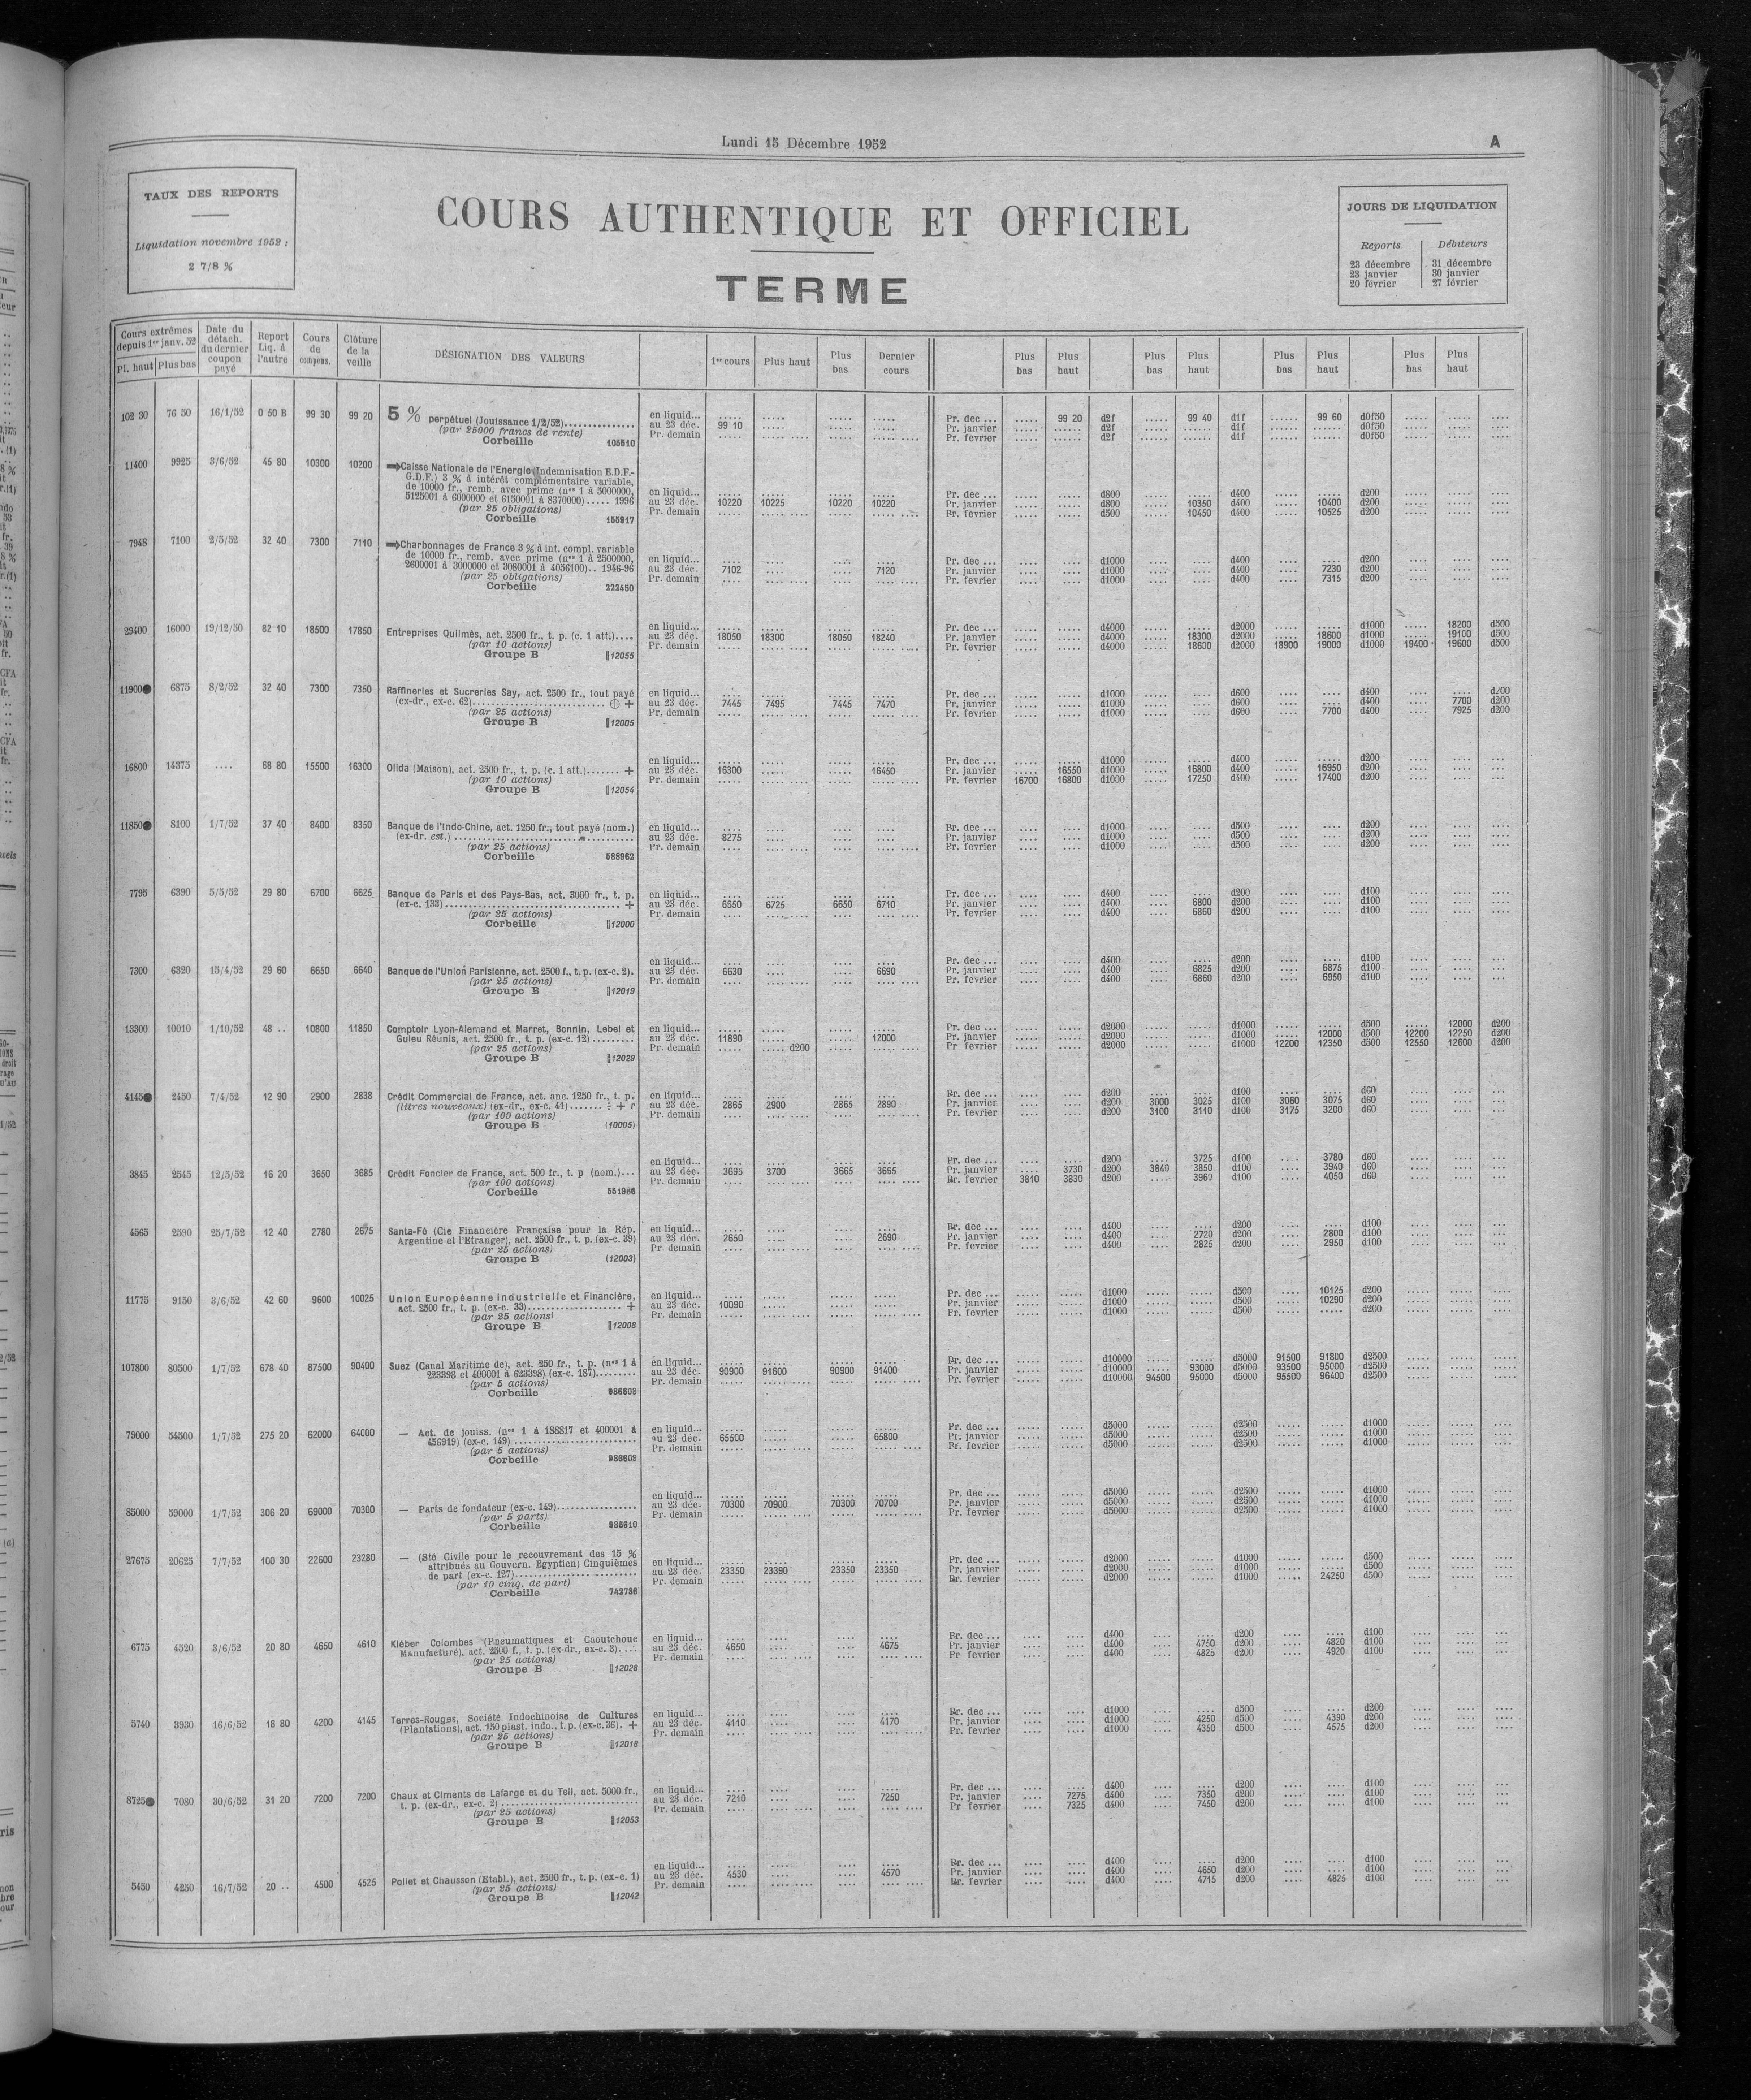 Lundi 15 Décembre 1952
A
TAUX DES REPORTS
Liquidation novembre 1952 :
2 7/8 %
COURS AUTHENTIQUE ET OFFICIEL
TERME
JOURS DE LIQUIDATION
Reports Débiteurs
23 décembre 31 décembre
23 janvier 30 janvier
20 février 27 février
Cours extrêmes depuis 1er janv. 52 Pl. haut Plus bas
Date du détach. du dernier coupon payé
Report Liq. à l'autre
Cours de compens.
Clôture de la veille
DÉSIGNATION DES VALEURS
1er cours Plus haut Plus bas Dernier cours
Plus bas Plus haut Plus bas Plus haut Plus bas Plus haut Plus bas Plus haut
102 30 76 50 16/1/52 0 50 B 99 30 99 20 5 % perpétuel (Jouissance 1/2/52) en liquid... Pr. dec ... 99 20 d2f 99 40 d1f 99 60 d0f50
(par 25000 francs de rente) au 23 déc. 99 10 Pr. janvier d2f d1f d0f50
Corbeille 105510 Pr. demain Pr. fevrier d2f d1f d0f50
11400 9925 3/6/52 45 80 10300 10200 Caisse Nationale de l'Energie (Indemnisation E.D.F.-
G.D.F.) 3 % à intérêt complémentaire variable,
de 10000 fr., remb. avec prime (nos 1 à 5000000, en liquid... Pr. dec ... d800 d400 d200
5125001 à 6000000 et 6150001 à 8370000) 1996 au 23 déc. 10220 10225 10220 10220 Pr. janvier d800 10350 d400 10400 d200
(par 25 obligations) Pr. demain Pr. fevrier d500 10450 d400 10525 d200
Corbeille 155917
7948 7100 2/5/52 32 40 7300 7110 Charbonnages de France 3 % à int. compl. variable
de 10000 fr., remb. avec prime (nos 1 à 2500000, en liquid... Pr. dec ... d1000 d400 d200
2600001 à 3000000 et 3080001 à 4056100).. 1946-96 au 23 déc. 7102 7120 Pr. janvier d1000 d400 7230 d200
(par 25 obligations) Pr. demain Pr. fevrier d1000 d400 7315 d200
Corbeille 222450
29400 16000 19/12/50 82 10 18500 17850 en liquid... Pr. dec ... d4000 d2000 d1000 18200 d500
Entreprises Quilmès, act. 2500 fr., t. p. (c. 1 att.).... au 23 déc. 18050 18300 18050 18240 Pr. janvier d4000 18300 d2000 18600 d1000 19100 d500
(par 10 actions) Pr. demain Pr. fevrier d4000 18600 d2000 18900 19000 d1000 19400 19600 d500
Groupe B 12055
11900 6875 8/2/52 32 40 7300 7350 Raffineries et Sucreries Say, act. 2500 fr., tout payé en liquid... Pr. dec ... d1000 d600 d400
(ex-dr., ex-c. 62) ⊕ + au 23 déc. 7445 7495 7445 7470 Pr. janvier d1000 d600 d400 7700 d200
(par 25 actions) Pr. demain Pr. fevrier d1000 d600 7700 d400 7925 d200
Groupe B 12005
16800 14375 .... 68 80 15500 16300 en liquid... Pr. dec ... d1000 d400 d200
Olida (Maison), act. 2500 fr., t. p. (c. 1 att.)....... + au 23 déc. 16300 16450 Pr. janvier 16550 d1000 16800 d400 16950 d200
(par 10 actions) Pr. demain Pr. fevrier 16700 16800 d1000 17250 d400 17400 d200
Groupe B 12054
11850 8100 1/7/52 37 40 8400 8350 Banque de l'Indo-Chine, act. 1250 fr., tout payé (nom.) en liquid... Pr. dec ... d1000 d500 d200
(ex-dr. est.) au 23 déc. 8275 Pr. janvier d1000 d500 d200
(par 25 actions) Pr. demain Pr. fevrier d1000 d500 d200
Corbeille 588962
7795 6390 5/5/52 29 80 6700 6625 Banque de Paris et des Pays-Bas, act. 3000 fr., t. p. en liquid... Pr. dec ... d400 d200 d100
(ex-c. 133) + au 23 déc. 6650 6725 6650 6710 Pr. janvier d400 6800 d200 d100
(par 25 actions) Pr. demain Pr. fevrier d400 6860 d200 d100
Corbeille 12000
7300 6320 15/4/52 29 60 6650 6640 en liquid... Pr. dec ... d400 d200 d100
Banque de l'Union Parisienne, act. 2500 f., t. p. (ex-c. 2). au 23 déc. 6630 6690 Pr. janvier d400 6825 d200 6875 d100
(par 25 actions) Pr. demain Pr. fevrier d400 6860 d200 6950 d100
Groupe B 12019
13300 10010 1/10/52 48 .. 10800 11850 Comptoir Lyon-Alemand et Marret, Bonnin, Lebel et en liquid... Pr. dec ... d2000 d1000 d500 12000 d200
Guieu Réunis, act. 2500 fr., t. p. (ex-c. 12) au 23 déc. 11890 12000 Pr. janvier d2000 d1000 12000 d500 12200 12250 d200
(par 25 actions) Pr. demain d200 Pr fevrier d2000 d1000 12200 12350 d500 12550 12600 d200
Groupe B 12029
4145 2450 7/4/52 12 90 2900 2838 Crédit Commercial de France, act. anc. 1250 fr., t. p. en liquid... Pr. dec ... d200 d100 d60
(titres nouveaux) (ex-dr., ex-c. 41) + r au 23 déc. 2865 2900 2865 2890 Pr. janvier d200 3000 3025 d100 3060 3075 d60
(par 100 actions) Pr. demain Pr. fevrier d200 3100 3110 d100 3175 3200 d60
Groupe B (10005)
3845 2545 12/5/52 16 20 3650 3685 en liquid... Pr. dec ... d200 3725 d100 3780 d60
Crédit Foncier de France, act. 500 fr., t. p (nom.)... au 23 déc. 3695 3700 3665 3665 Pr. janvier 3730 d200 3840 3850 d100 3940 d60
(par 100 actions) Pr. demain Pr. fevrier 3810 3830 d200 3960 d100 4050 d60
Corbeille 551966
4565 2590 25/7/52 12 40 2780 2675 Santa-Fé (Cie Financière Française pour la Rép. en liquid... Pr. dec ... d400 d200 d100
Argentine et l'Etranger), act. 2500 fr., t. p. (ex-c. 39) au 23 déc. 2650 2690 Pr. janvier d400 2720 d200 2800 d100
(par 25 actions) Pr. demain Pr. fevrier d400 2825 d200 2950 d100
Groupe B (12003)
11775 9150 3/6/52 42 60 9600 10025 Union Européenne Industrielle et Financière, en liquid... Pr. dec ... d1000 d500 10125 d200
act. 2500 fr., t. p. (ex-c. 33) + au 23 déc. 10090 Pr. janvier d1000 d500 10290 d200
(par 25 actions) Pr. demain Pr. fevrier d1000 d500 d200
Groupe B 12008
107800 80500 1/7/52 678 40 87500 90400 Suez (Canal Maritime de), act. 250 fr., t. p. (nos 1 à en liquid... Pr. dec ... d10000 d5000 91500 91800 d2500
223398 et 400001 à 623398) (ex-c. 187) au 23 déc. 90900 91600 90900 91400 Pr. janvier d10000 93000 d5000 93500 95000 d2500
(par 5 actions) Pr. demain Pr. fevrier d10000 94500 95000 d5000 95500 96400 d2500
Corbeille 986608
79000 54500 1/7/52 275 20 62000 64000 — Act. de jouiss. (nos 1 à 188817 et 400001 à en liquid... Pr. dec ... d5000 d2500 d1000
456919) (ex-c. 149) au 23 déc. 65500 65800 Pr. janvier d5000 d2500 d1000
(par 5 actions) Pr. demain Pr. fevrier d5000 d2500 d1000
Corbeille 986609
85000 59000 1/7/52 306 20 69000 70300 en liquid... Pr. dec ... d5000 d2500 d1000
— Parts de fondateur (ex-c. 149) au 23 déc. 70300 70900 70300 70700 Pr. janvier d5000 d2500 d1000
(par 5 parts) Pr. demain Pr. fevrier d5000 d2500 d1000
Corbeille 986610
27675 20625 7/7/52 100 30 22600 23280 — (Sté Civile pour le recouvrement des 15 %
attribués au Gouvern. Egyptien) Cinquièmes en liquid... Pr. dec ... d2000 d1000 d500
de part (ex-c. 127) au 23 déc. 23350 23390 23350 23350 Pr. janvier d2000 d1000 d500
(par 10 cinq. de part) Pr. demain Pr. fevrier d2000 d1000 24250 d500
Corbeille 742786
6775 4520 3/6/52 20 80 4650 4610 Kléber Colombes (Pneumatiques et Caoutchouc en liquid... Pr. dec ... d400 d200 d100
Manufacturé), act. 2500 f., t. p. (ex-dr., ex-c. 3).... au 23 déc. 4650 4675 Pr. janvier d400 4750 d200 4820 d100
(par 25 actions) Pr. demain Pr fevrier d400 4825 d200 4920 d100
Groupe B 12028
5740 3930 16/6/52 18 80 4200 4145 Terres-Rouges, Société Indochinoise de Cultures en liquid... Pr. dec ... d1000 d500 d200
(Plantations), act. 150 piast. indo., t. p. (ex-c. 36). + au 23 déc. 4110 4170 Pr. janvier d1000 4250 d500 4390 d200
(par 25 actions) Pr. demain Pr. fevrier d1000 4350 d500 4575 d200
Groupe B 12018
8725 7080 30/6/52 31 20 7200 7200 Chaux et Ciments de Lafarge et du Teil, act. 5000 fr., en liquid... Pr. dec ... d400 d200 d100
t. p. (ex-dr., ex-c. 2) au 23 déc. 7210 7250 Pr. janvier 7275 d400 7350 d200 d100
(par 25 actions) Pr. demain Pr fevrier 7325 d400 7450 d200 d100
Groupe B 12053
5450 4250 16/7/52 20 .. 4500 4525 en liquid... Pr. dec ... d400 d200 d100
Poliet et Chausson (Etabl.), act. 2500 fr., t. p. (ex-c. 1) au 23 déc. 4530 4570 Pr. janvier d400 4650 d200 d100
(par 25 actions) Pr. demain Pr. fevrier d400 4715 d200 4825 d100
Groupe B 12042